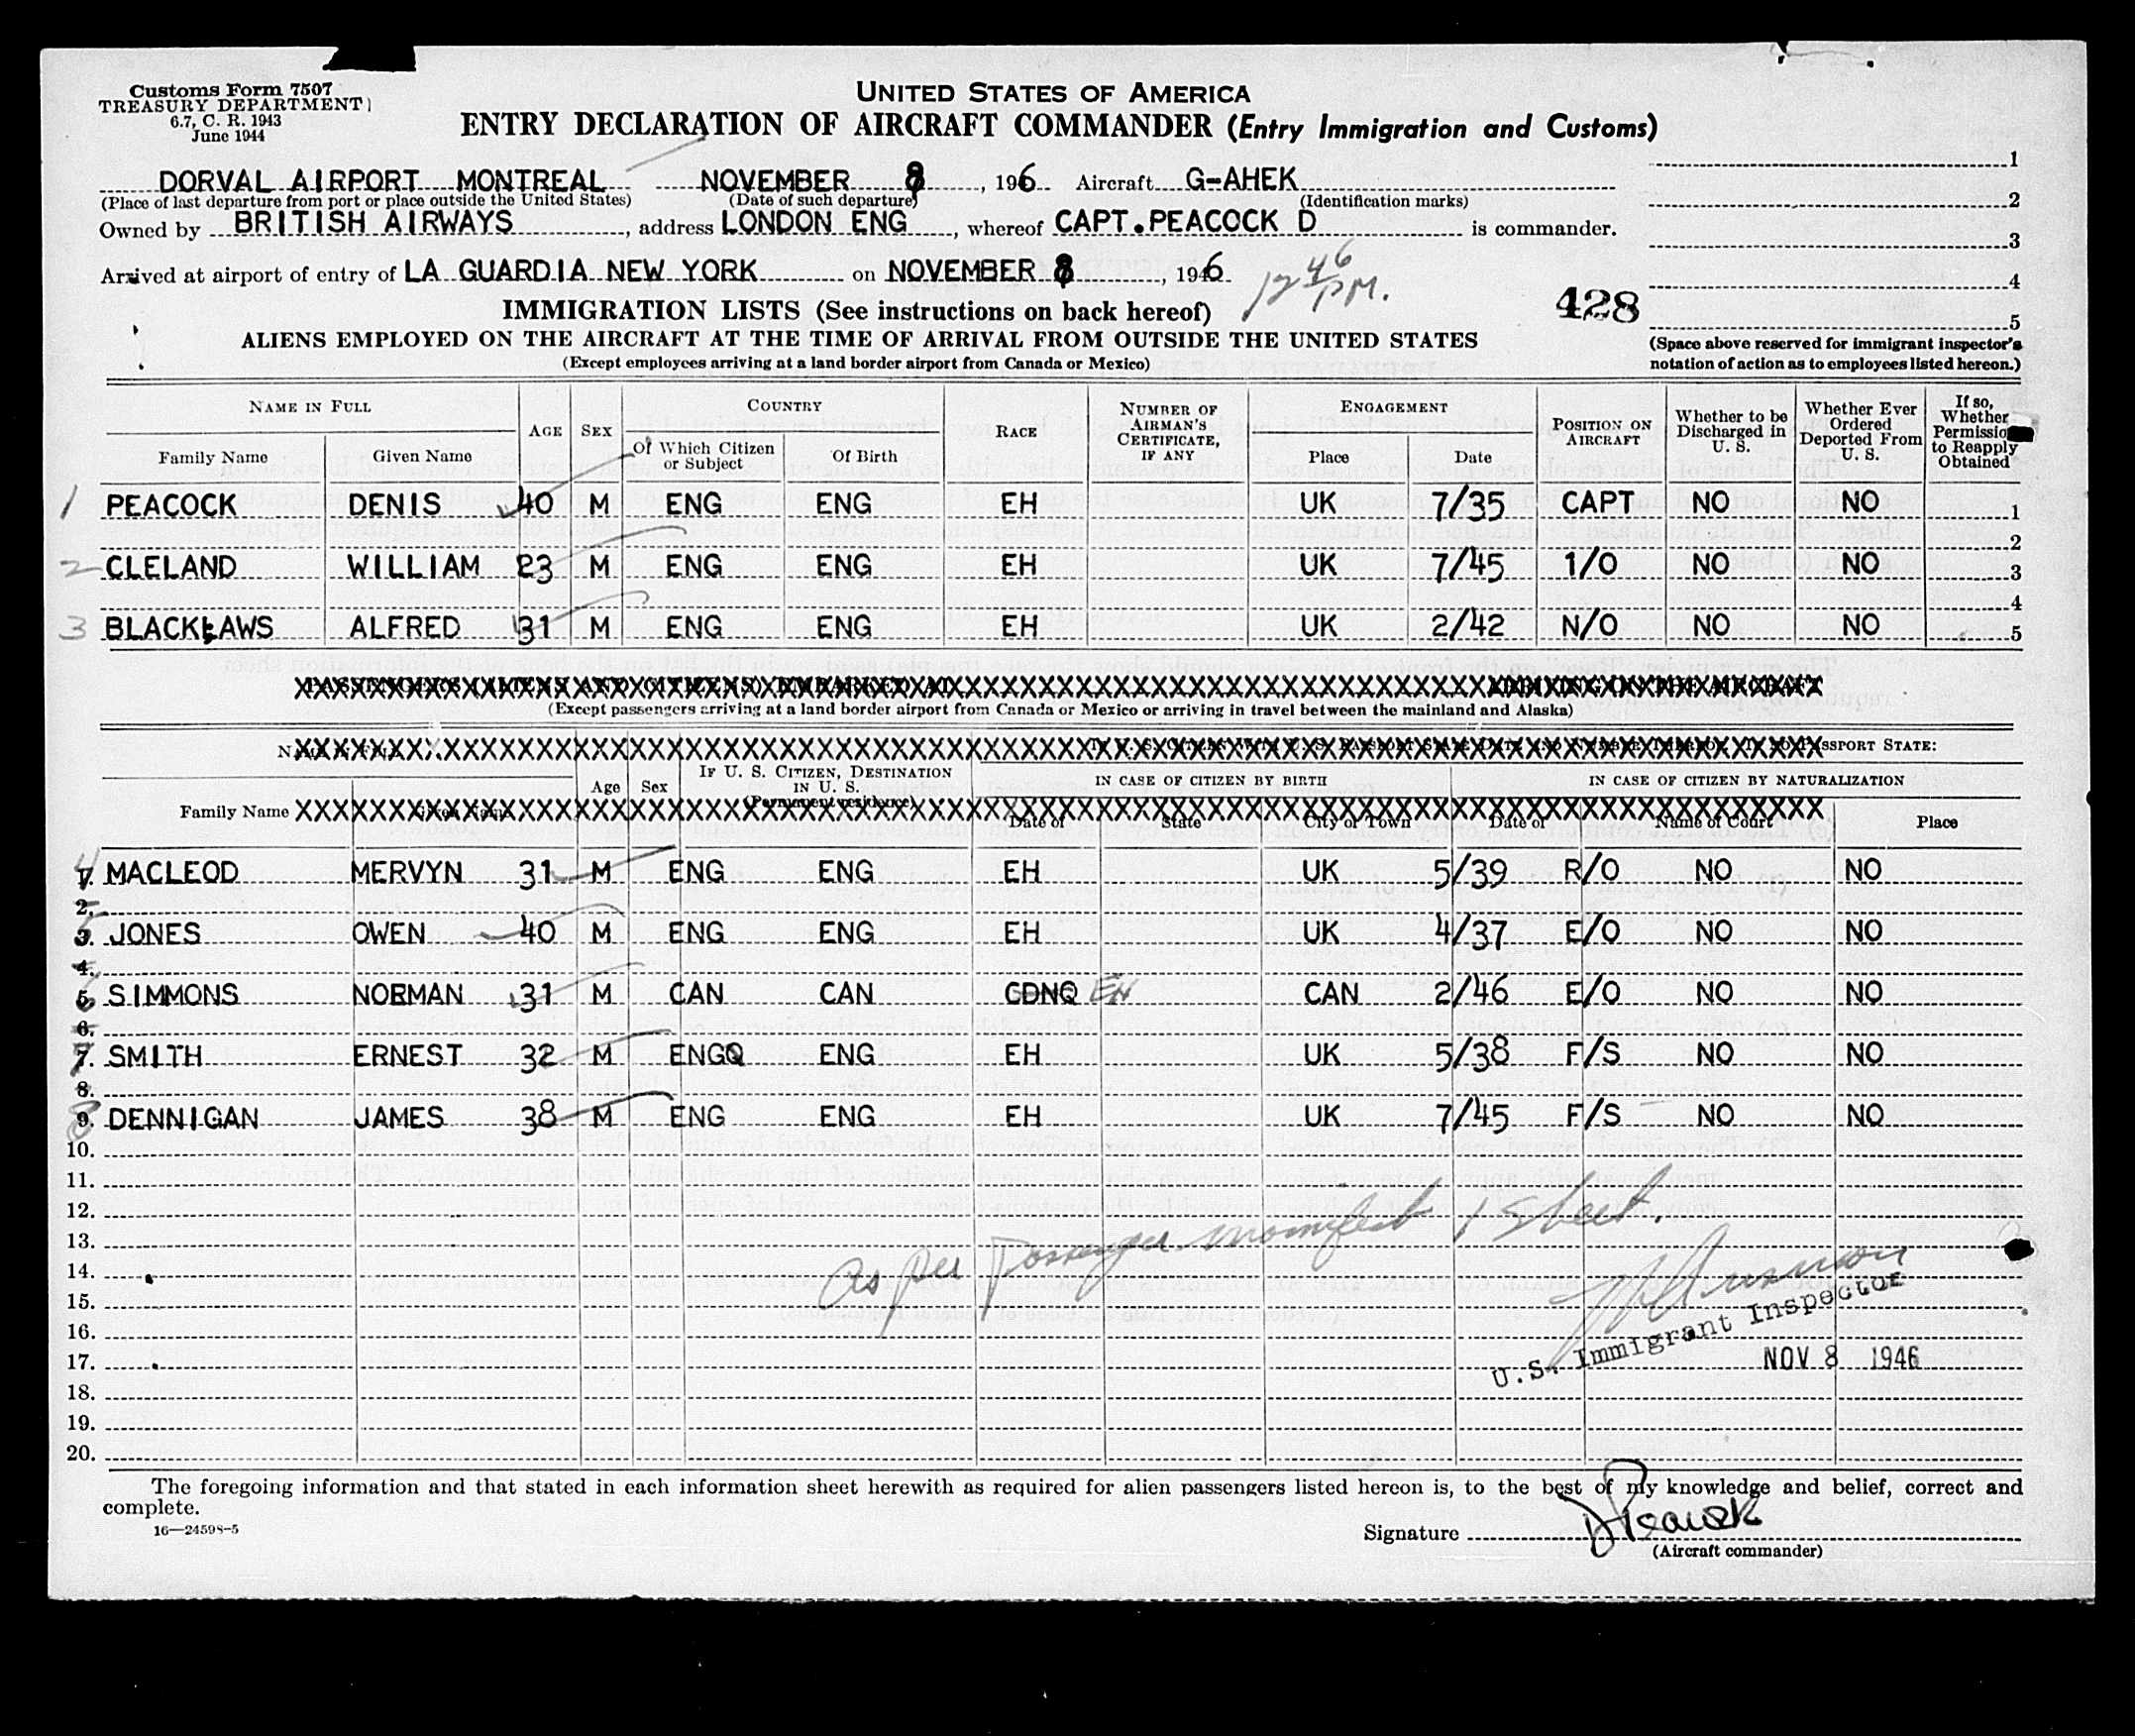 Customs Form 7507
TREASURY DEPARTMENT
6.7, C. R. 1943
June 1944
UNITED STATES OF AMERICA
ENTRY DECLARATION OF AIRCRAFT COMMANDER (Entry Immigration and Customs)
DORVAL AIRPORT MONTREAL NOVEMBER 8, 1946 Aircraft G-AHEK
(Place of last departure from port or place outside the United States) (Date of such departure) (Identification marks)
Owned by BRITISH AIRWAYS, address LONDON ENG, whereof CAPT.PEACOCK D is commander.
Arrived at airport of entry of LA GUARDIA NEW YORK on NOVEMBER 8, 1946 12 46 PM.
1
2
3
4
5
428
(Space above reserved for immigrant inspector's notation of action as to employees listed hereon.)
IMMIGRATION LISTS (See instructions on back hereof)
ALIENS EMPLOYED ON THE AIRCRAFT AT THE TIME OF ARRIVAL FROM OUTSIDE THE UNITED STATES
(Except employees arriving at a land border airport from Canada or Mexico)
NAME IN FULL AGE SEX COUNTRY RACE NUMBER OF AIRMAN'S CERTIFICATE, IF ANY ENGAGEMENT POSITION ON AIRCRAFT Whether to be Discharged in U. S. Whether Ever Ordered Deported From U. S. If so, Whether Permission to Reapply Obtained
Family Name Given Name Of Which Citizen or Subject Of Birth Place Date
1 PEACOCK DENIS 40 M ENG ENG EH UK 7/35 CAPT NO NO 1
2
2 CLELAND WILLIAM 23 M ENG ENG EH UK 7/45 1/O NO NO 3
4
3 BLACKLAWS ALFRED 31 M ENG ENG EH UK 2/42 N/O NO NO 5
PASSENGERS (ALIENS AND CITIZENS) EMBARKED AT ARRIVING BY THE AIRCRAFT
(Except passengers arriving at a land border airport from Canada or Mexico or arriving in travel between the mainland and Alaska)
NAME IN FULL IF U. S. CITIZEN WITH U. S. PASSPORT STATE DATE AND NUMBER THEREOF. IF NO PASSPORT STATE:
Age Sex IF U. S. CITIZEN, DESTINATION IN U. S. (Permanent residence) IN CASE OF CITIZEN BY BIRTH IN CASE OF CITIZEN BY NATURALIZATION
Family Name Given Name Date of State City or Town Date of Name of Court Place
4 1. MACLEOD MERVYN 31 M ENG ENG EH UK 5/39 R/O NO NO
2.
5 3. JONES OWEN 40 M ENG ENG EH UK 4/37 E/O NO NO
4.
6 5. SIMMONS NORMAN 31 M CAN CAN CDNQ EH CAN 2/46 E/O NO NO
6.
7 7. SMITH ERNEST 32 M ENGQ ENG EH UK 5/38 F/S NO NO
8.
8 9. DENNIGAN JAMES 38 M ENG ENG EH UK 7/45 F/S NO NO
10.
11.
12.
13.
14.
15.
16.
17.
18.
19.
20.
as per passenger manifest 1 sheet.
U.S. Immigrant Inspector
NOV 8 1946
The foregoing information and that stated in each information sheet herewith as required for alien passengers listed hereon is, to the best of my knowledge and belief, correct and
complete.
16—24598-5
Signature D Peacock
(Aircraft commander)